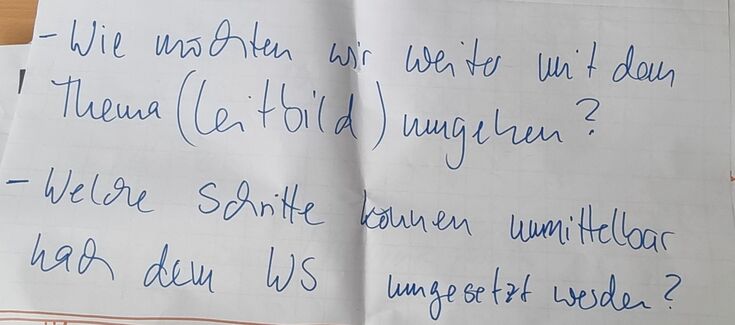 - Wie möchten wir weiter mit dem
Thema (Leitbild) umgehen?
- Welche Schritte können unmittelbar
nach dem WS umgesetzt werden?